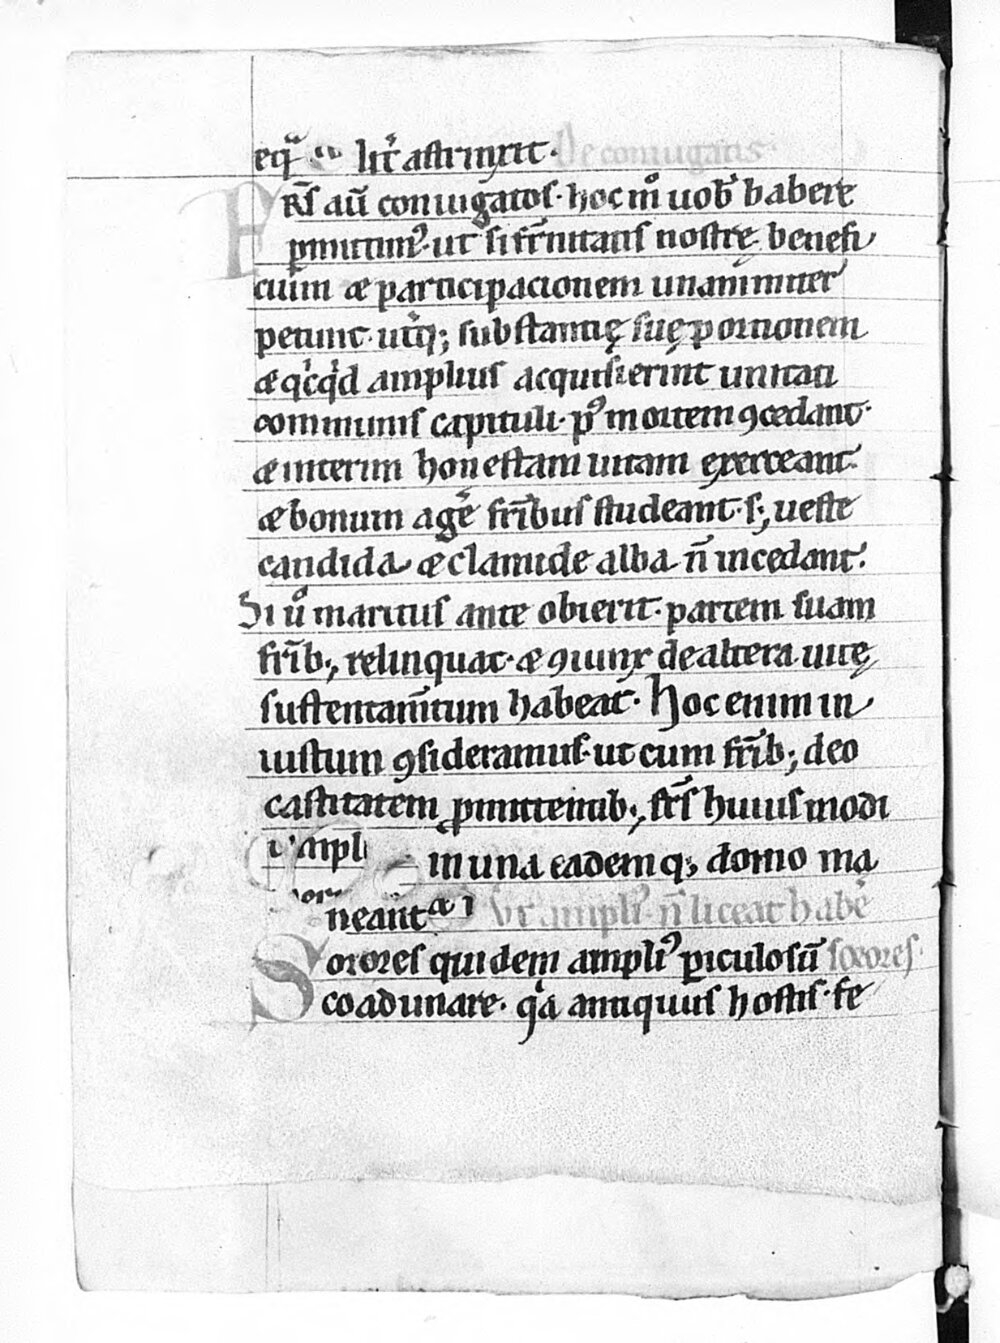 lit̾ astrinxit. De coniugatis.
Fr̅s au̅ coniugatos. hoc mo̊ uob̅ habere
p̱mittim᷒. ut si fr̅nitatis nostrę benefi
cium æ participacionem unanimiter
petunt. utq̇; substantię suę portionem
æ qicqid amplius acquisierint unitati
communis capituli. p᷒ mortem ꝯcedant.
æ interim honestam uitam exerceant.
æ bonum age̅ fr̅ibus studeant. s; ueste
candida æ clamide alba n̅ incedant.
Si uͦ maritus ante obierit. partem suam
fr̅ib; relinquat. æ ꝯiunx de altera uitę
sustentam̅tum habeat. Hoc enim in
iustum ꝯsideramus. ut cum fr̅ib; deo
castitatem ꝓmittentib; fr̅s huiusmodi
in una eademq; domo ma
neant Vt ampli᷒. n̅ liceat habe̅
Sorores quidem ampli᷒ ꝑiculosu̅ sorores.
coadunare. qa antiquus hostis. fe